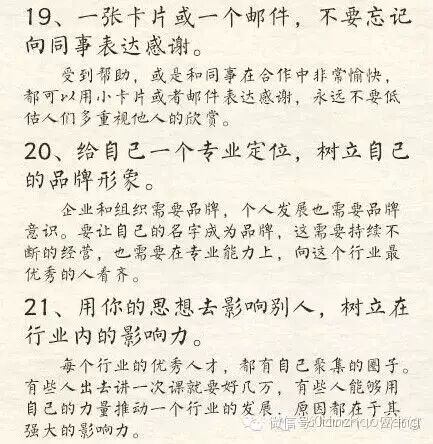 19、一张卡片或一个邮件，不要忘记
向同事表达感谢。
受到帮助，或是和同事在合作中非常愉快，
都可以用小卡片或者邮件表达感谢，永远不要低
估人们多重视他人的欣赏。
20、给自己一个专业定位，树立自己
的品牌形象。
企业和组织需要品牌，个人发展也需要品牌
意识。要让自己的名字成为品牌，这需要持续不
断的经营，也需要在专业能力上，向这个行业最
优秀的人看齐。
21、用你的思想去影响别人，树立在
行业内的影响力。
每个行业的优秀人才，都有自己聚集的圈子。
有些人出去讲一次课就要好几万，有些人能够用
自己的力量推动一个行业的发展，原因都在于其
强大的影响力。
微信号